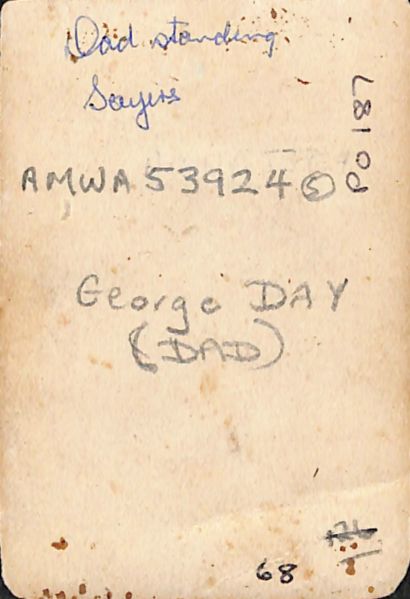 Dad standing
Sayers
AMWA 53924 ⑤
George DAY
(DAD)
68